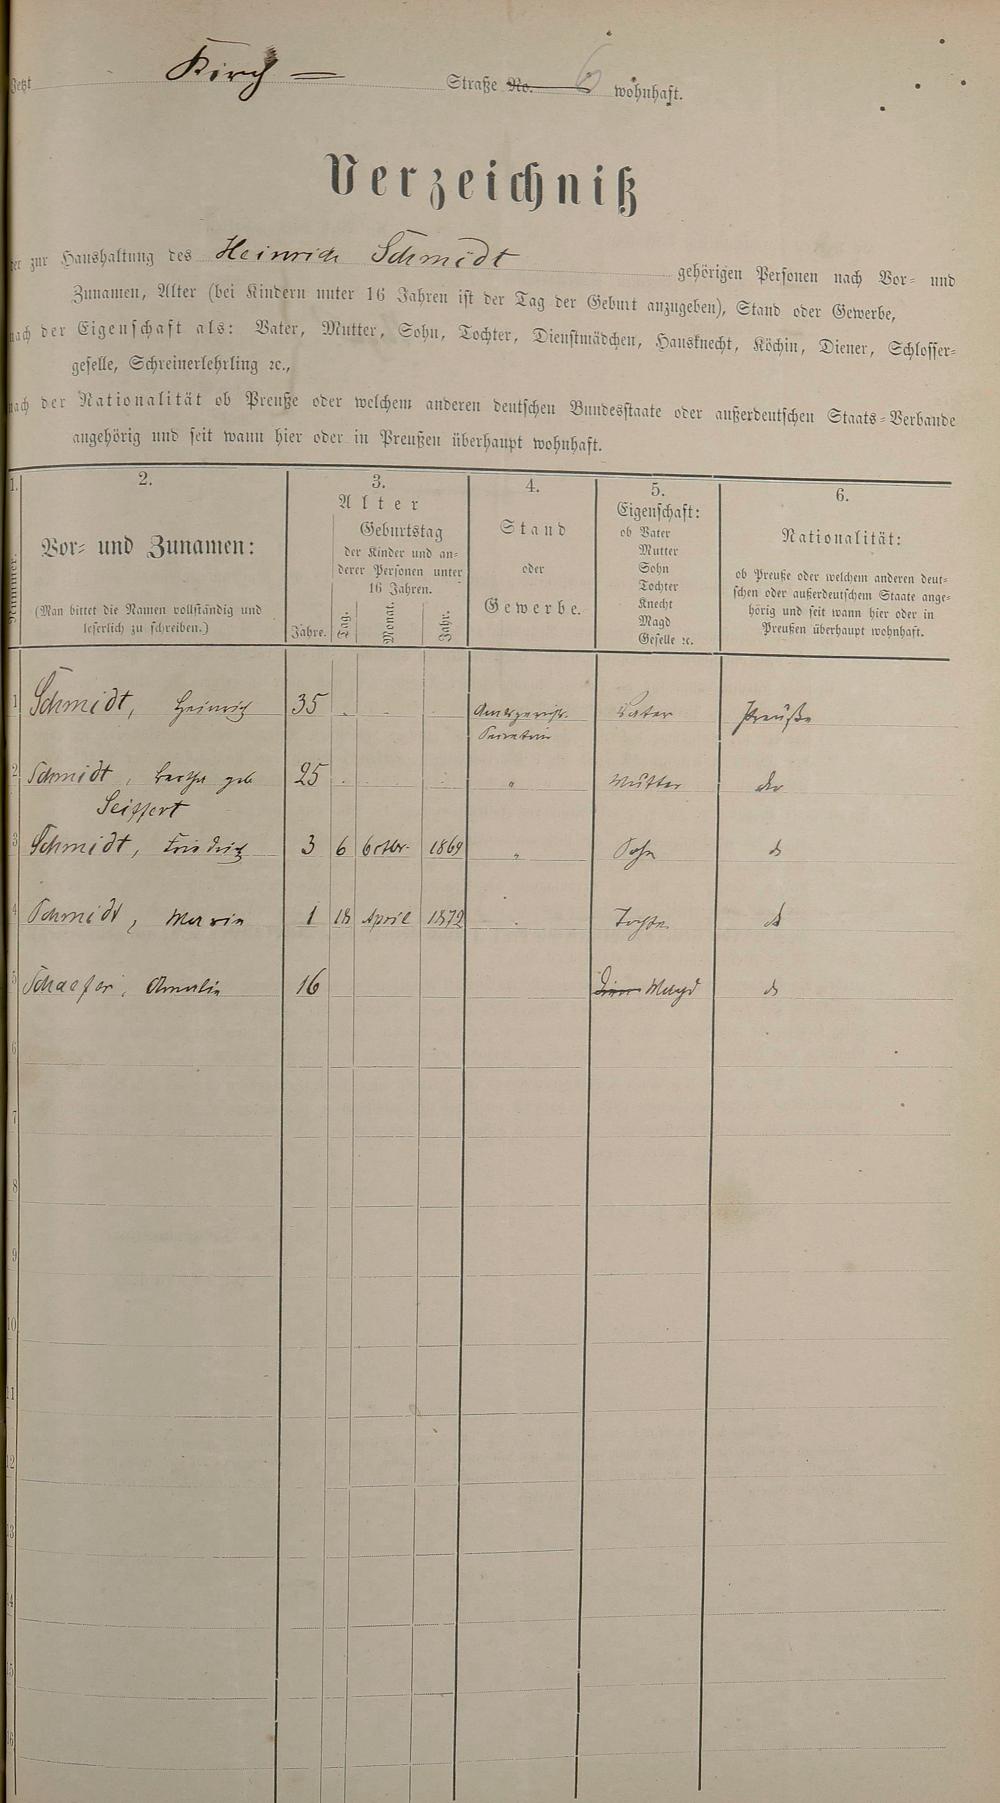 Jetzt Kirch — Straße No. 6 wohnhaft.
Verzeichniß
der zur Haushaltung des Heinrich Schmidt gehörigen Personen nach Vor- und
Zunamen, Alter (bei Kindern unter 16 Jahren ist der Tag der Geburt anzugeben), Stand oder Gewerbe,
nach der Eigenschaft als: Vater, Mutter, Sohn, Tochter, Dienstmädchen, Hausknecht, Köchin, Diener, Schlosser-
geselle, Schreinerlehrling ꝛc.,
nach der Nationalität ob Preuße oder welchem anderen deutschen Bundesstaate oder außerdeutschen Staats-Verbande
angehörig und seit wann hier oder in Preußen überhaupt wohnhaft.
1. 2. 3. 4. 5. 6.
Nummer.
Vor- und Zunamen:
(Man bittet die Namen vollständig und
leserlich zu schreiben.)
Alter
Jahre.
Geburtstag
der Kinder und an-
derer Personen unter
16 Jahren.
Tag. Monat. Jahr.
Stand
oder
Gewerbe.
Eigenschaft:
ob Vater
Mutter
Sohn
Tochter
Knecht
Magd
Geselle ꝛc.
Nationalität:
ob Preuße oder welchem anderen deut-
schen oder außerdeutschem Staate ange-
hörig und seit wann hier oder in
Preußen überhaupt wohnhaft.
1 Schmidt, Heinrich 35 Amtsgerichts- Vater Preuße
Secretair
2 Schmidt, Bertha geb " Mutter do
Seiffert 25
3 Schmidt, Friedrich 3 6 October 1869 " Sohn do
4 Schmidt, Maria 1 18 April 1872 Tochter do
5 Schaefer, Amalie 16 Magd do
6
7
8
9
10
11
12
13
14
15
16